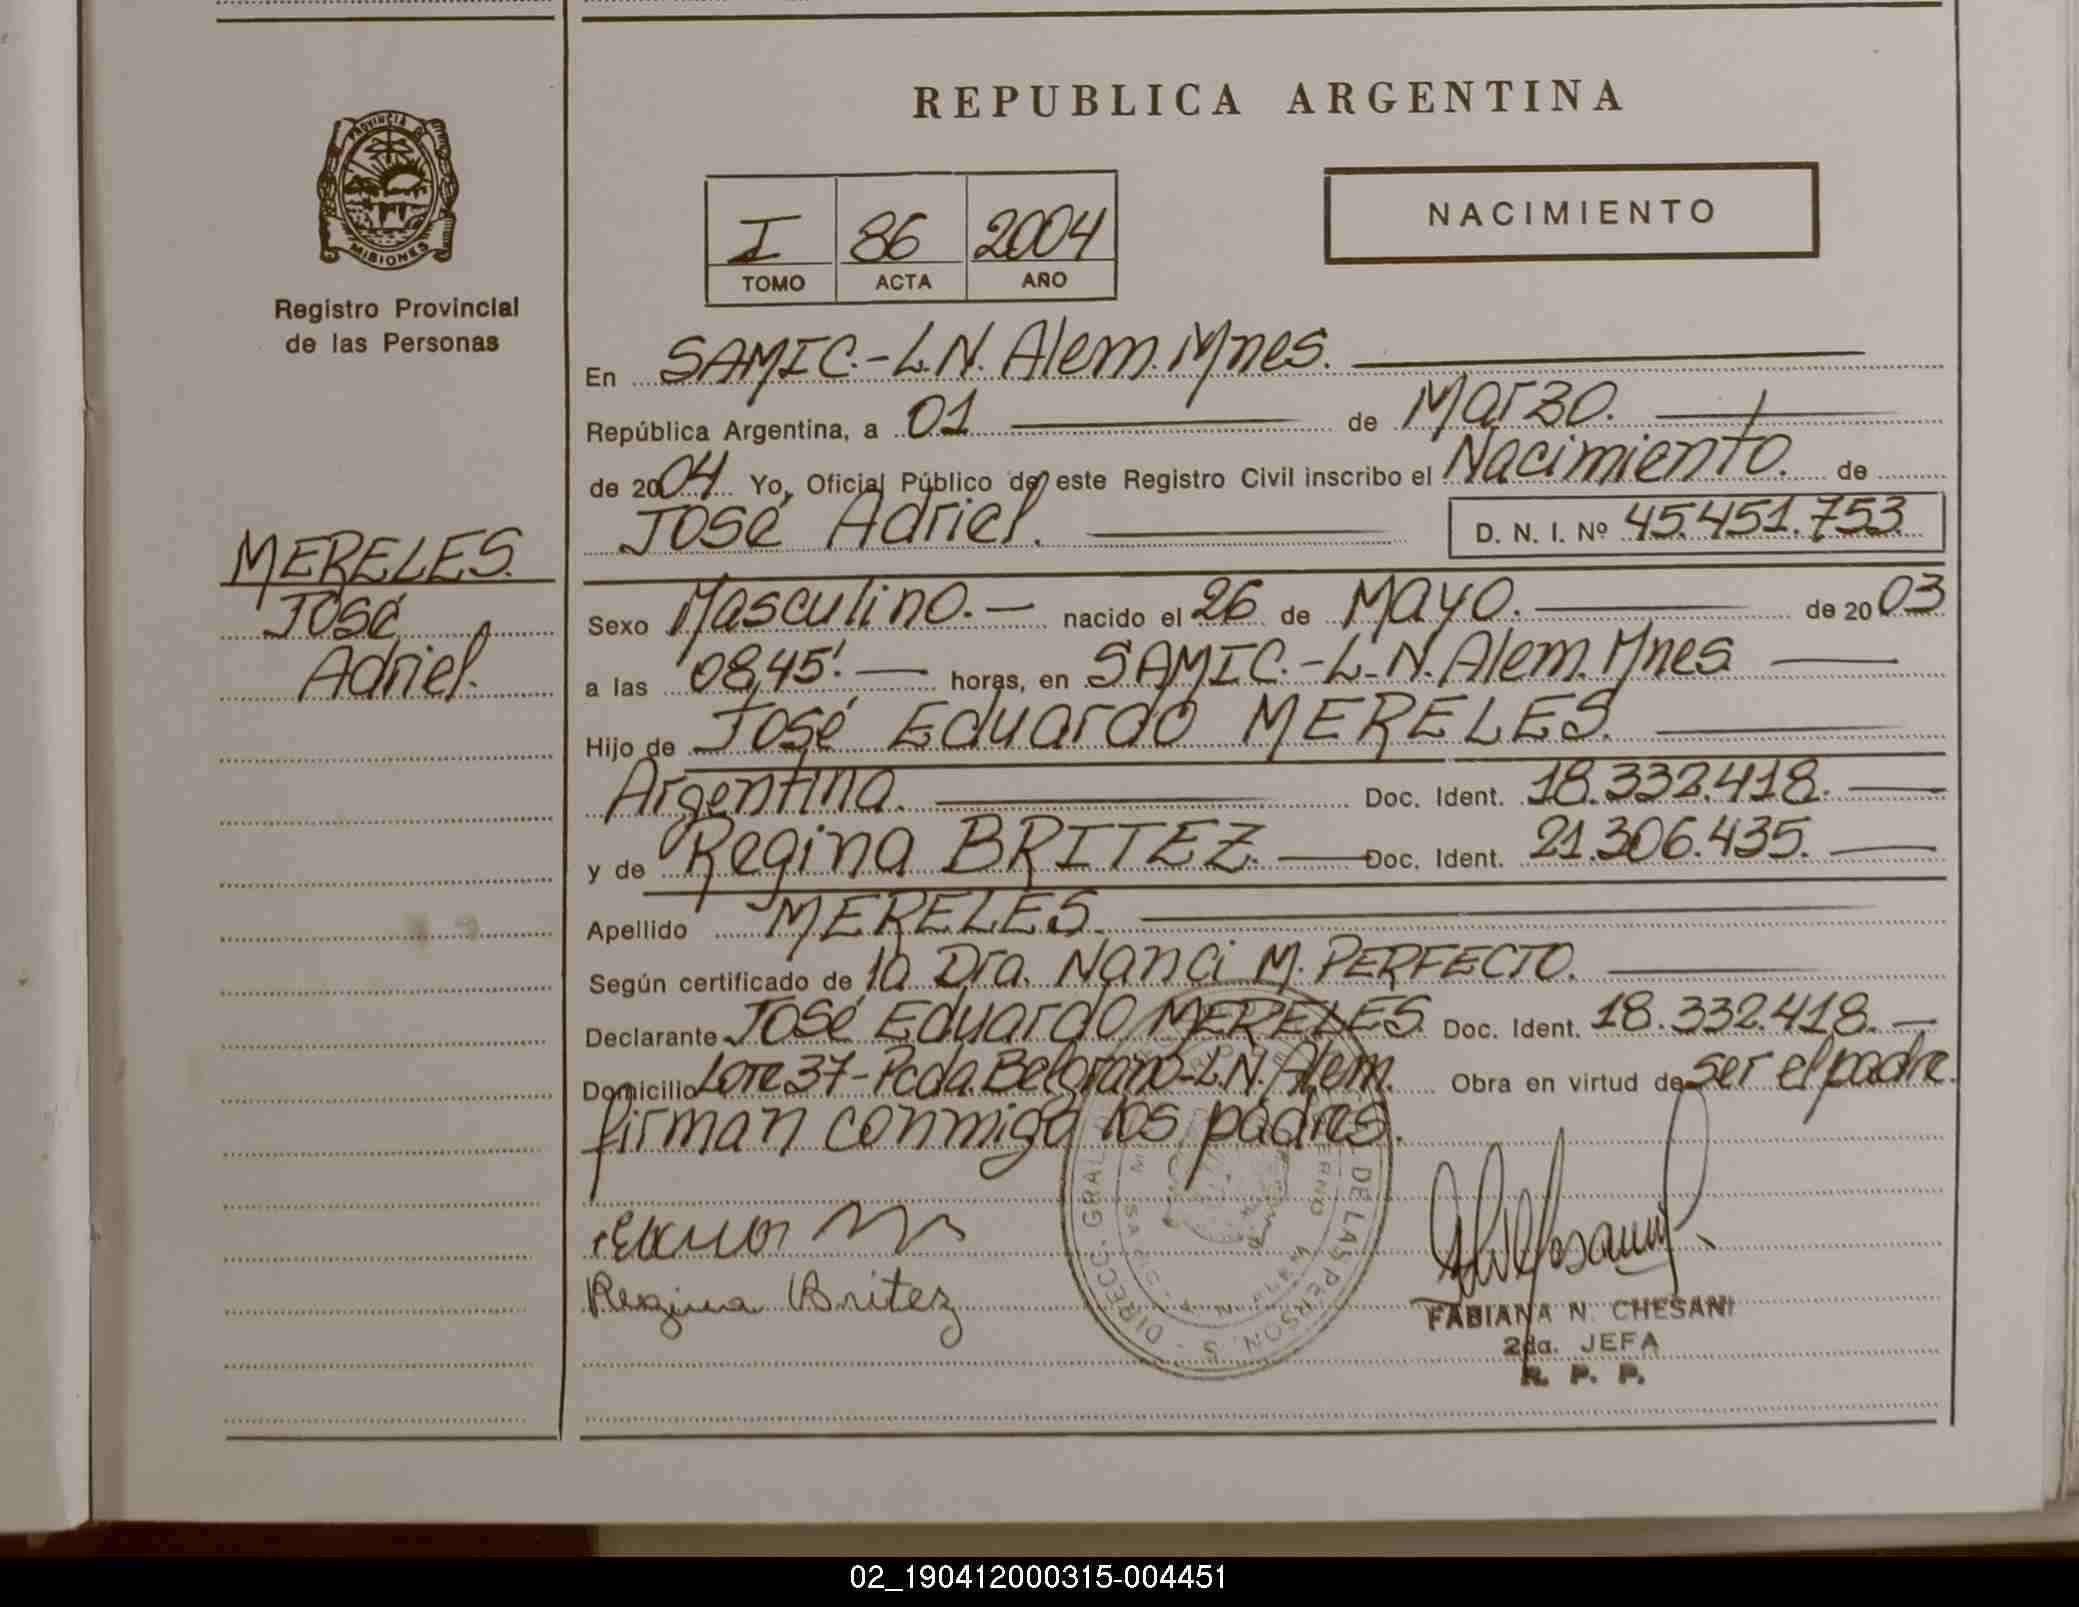 REPUBLICA ARGENTINA
PROVINCIA DE
MISIONES
Registro Provincial
de las Personas
I 86 2004
TOMO ACTA AÑO
NACIMIENTO
En SAMIC.-L.N. Alem. Mnes.
República Argentina, a 01 de Marzo.
de 2004 Yo, Oficial Público de este Registro Civil inscribo el Nacimiento. de
José Adriel. D. N. I. Nº 45.451.753
MERELES.
José
Adriel.
Sexo Masculino.- nacido el 26 de Mayo. de 2003
a las 08,45'. horas, en SAMIC.-L.N. Alem. Mnes
Hijo de José Eduardo MERELES.
Argentina. Doc. Ident. 18.332.418.
y de Regina BRITEZ. Doc. Ident. 21.306.435.
Apellido MERELES.
Según certificado de la Dra. Nanci M. PERFECTO.
Declarante José Eduardo MERELES. Doc. Ident. 18.332.418.
Domicilio Lote 37-Pcda. Belgrano-L.N. Alem. Obra en virtud de ser el padre.
firman conmigo los padres.
Regina Britez
DIRECC. GRAL. DE LAS PERSON.S
FABIANA N. CHESANI
2da. JEFA
R. P. P.
02_190412000315-004451